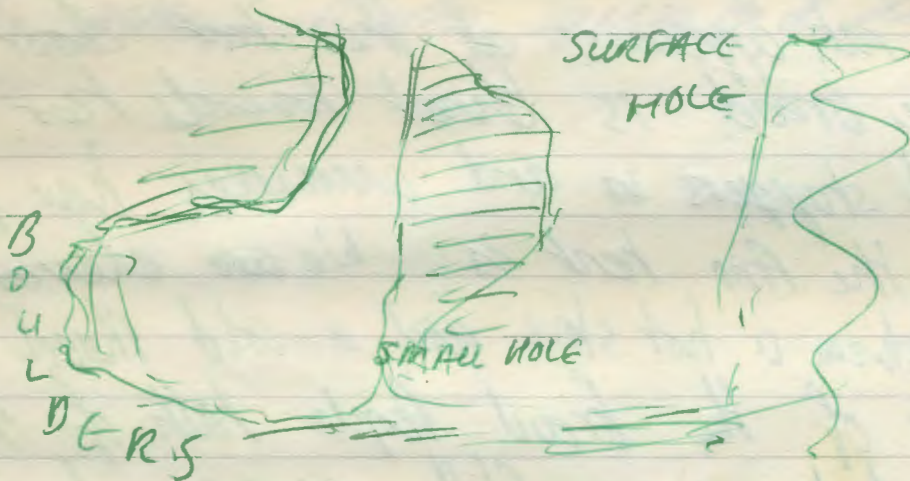 SURFACE
HOLE
BOULDERS
SMALL HOLE